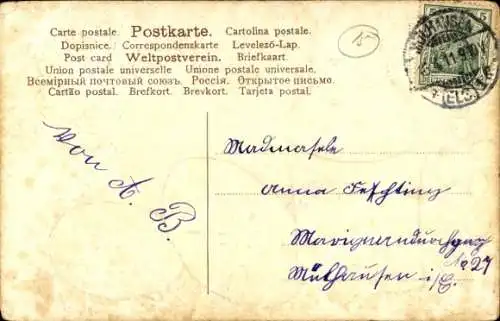 Carte postale. Postkarte. Cartolina postale.
Dopisnice. Correspondenzkarte Levelező-Lap.
Post card Weltpostverein. Briefkaart.
Union postale universelle Unione postale universale.
Всемірный почтовый союзъ. Россія. Открытое письмо.
Cartão postal. Brefkort. Brevkort. Tarjeta postal.
15
5
Von A. B.
Madmasele
Anna
No 27
Mülhausen i/E.